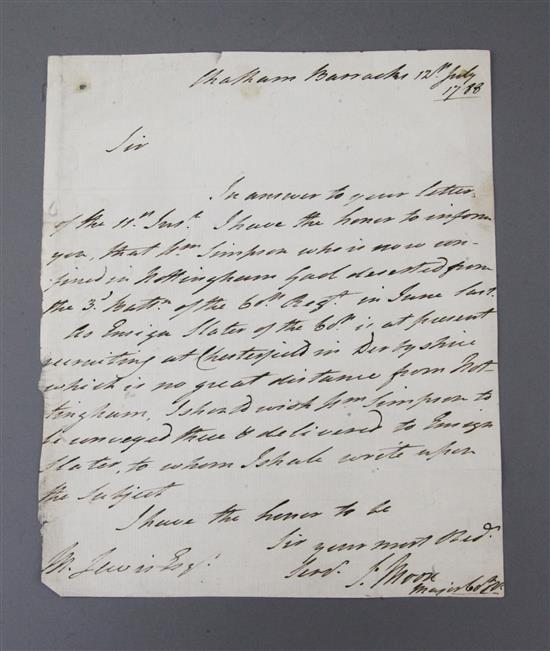 Chatham Barracks 12th July
1788
Sir
In answer to your letter
of the 11th Inst. I have the honor to inform
you, that Wm Simpson who is now con-
fined in Nottingham Gaol deserted from
the 3d Battn of the 60th Regt in June last.
As Ensign Slater of the 60th is at present
recruiting at Chesterfield in Derbyshire
which is no great distance from Not-
tingham, I shoud wish Wm Simpson to
be conveyed there & delivered to Ensign
Slater, to whom I shall write upon
the subject
I have the honor to be
Sir your most Obed.
M. Lewis Esqr. Servt. J. Moore
Major 60th Rt